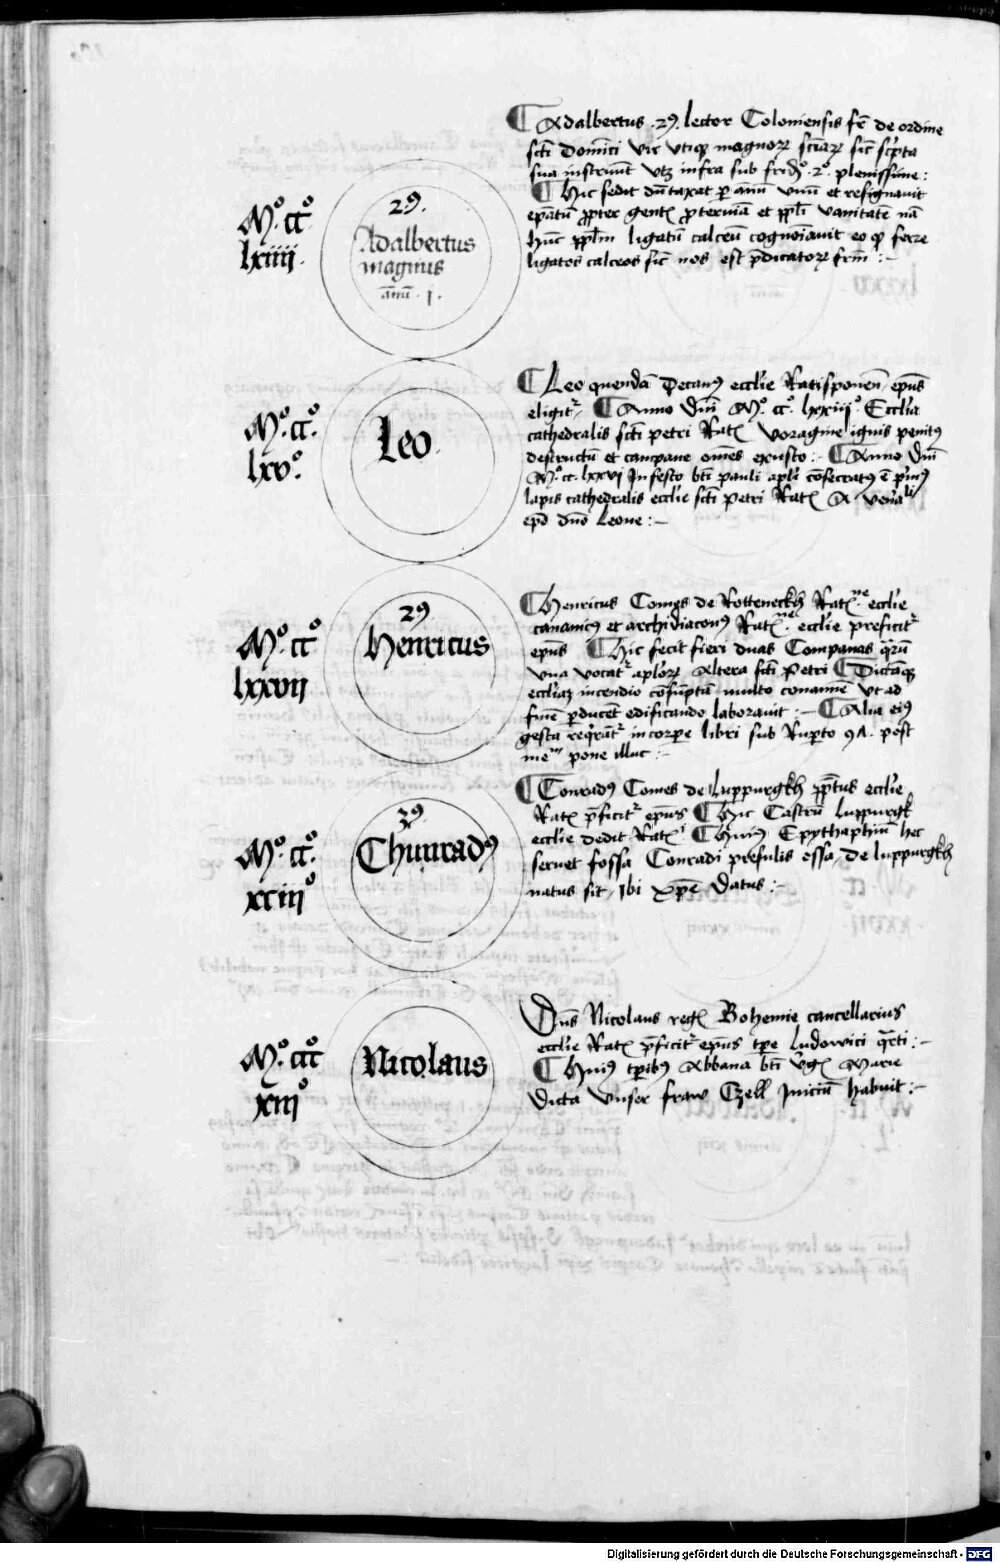 Mº. ccº.
lxiiii.
29.
Adalbertus
magnus
annū . j.
¶ Adalbertus .29. lector Coloniensis fr̄ de ordine
scti Dominici vir utiqꝫ magnoꝝ sciāꝝ sic̄ scpta
sua instruūt utꝫ infra sub frid̄º .2º. plenissime :
¶ Hic sedit dūtaxat ꝑ annū unū et resignauit
ep̄atū ꝓpter gentꝭ ꝓteruiā et ppl̄i vanitatē nā
hūc ppl̄m ligatū calceū cognoīauit eo ꝙ ferre
ligatos calceos sic̄ nos est p̄dicatoꝝ frm̄ :-
Mº. ccº.
lxvº.
Leo.
¶ Leo quendā Decanꝰ eccl̄ie Ratisponen̄ ep̄us
eligitꝛ ¶ Anno Dn̄i Mº. ccº. lxxiiiº. Ecclia
cathedralis scti petri Ratꝭ voragine ignis penitꝰ
destructū et campane om̄es exusto :- ¶ Anno Dn̄i
Mº. cc. lxxvi In festo bt̄i pauli apl̄i cōsecratꝰ ē p̄mꝰ
lapis cathedralis eccl̄ie scti Petri Ratꝭ A ven̄ali
ep̄o dn̄o Leone :-
Mº. ccº
lxxvii
29
Henricus
¶ Henricus Comes de Rotteneckh Ratꝭne eccl̄ie
canonicꝰ et archidiaconꝰ Ratꝭne. eccl̄ie preficitꝛ
ep̄us ¶ Hic fecit fieri duas Companas q̄rū
una vocatꝛ apl̄oꝝ Altera scti Petri ¶ Dictāqꝫ
eccl̄iaꝫ incendio cōsūptā multo conamīe ut ad
finē ꝑducēt edificando laborauit :- ¶ Alia eiꝰ
gesta req̄rātꝛ in corpe libri sub Ruꝑto 91. post
me pone illuc :-
Mº. ccº.
xciiiº
39.
Chunradꝰ
¶ Conradꝰ Comes de Luppurgkh pp̄tus eccl̄ie
Ratꝭ p̄ficitꝛ ep̄us ¶ Hic Castrū Luppurgk
eccl̄ie dedit Ratꝭ ¶ Huiꝰ Epythaphiū hec
seruet fossa Conradi presulis ossa, de luppurgkh
natus sit, Ibi xp̄e Datus :-
Mº. cccº
xiiiº
Nicolaus
Dn̄s Nicolaus regꝭ Bohemie cancellarius
eccl̄ie Ratꝭ p̄ficitꝛ ep̄us tp̄e Ludowici q̄rti :-
¶ Huiꝰ tp̄ibꝰ Abbana bt̄i v̄gꝭ Marie
Dicta unser fraw Czell Iniciū habuit :-
Digitalisierung gefördert durch die Deutsche Forschungsgemeinschaft - DFG